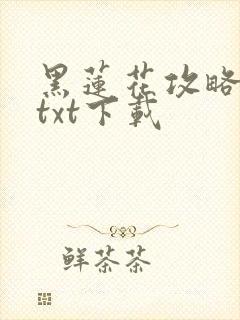 黑蓮花攻略
txt下載
鮮茶茶